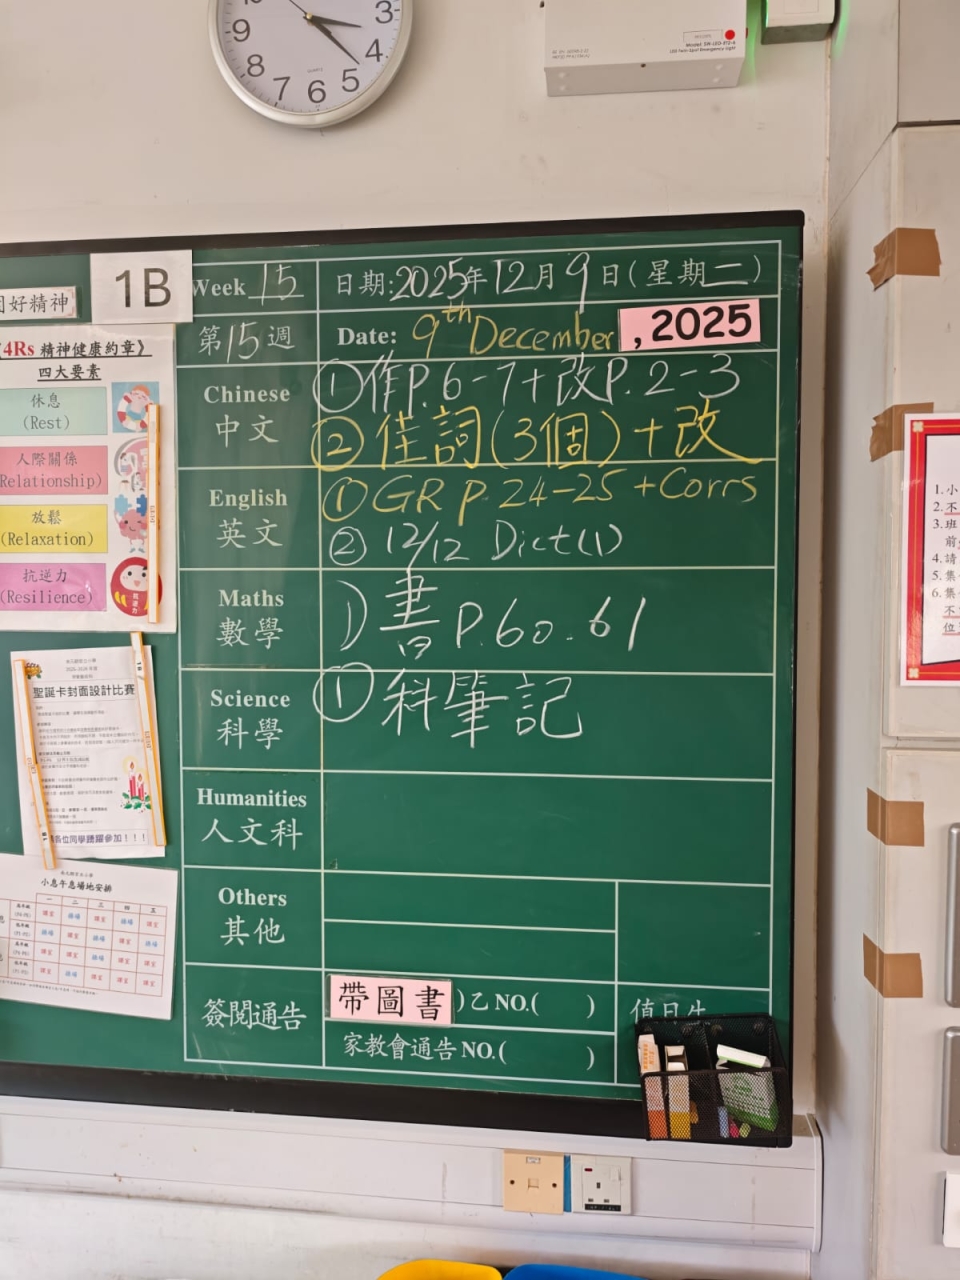 3
4
5
6
7
8
9
Model: SW-LED-212-6
LED Twin-Spot Emergency Light
1B
Week 15
日期:2025年12月9日(星期二)
好精神
第15週
Date: 9th December, 2025
《4Rs 精神健康約章》
四大要素
休息
(Rest)
人際關係
(Relationship)
放鬆
(Relaxation)
抗逆力
(Resilience)
Chinese
中文
① 作P.6-7+改P.2-3
② 佳詞(3個)+改
English
英文
① GR p.24-25 +Corrs
② 12/12 Dict(1)
Maths
數學
1) 書 P.60-61
Science
科學
① 科筆記
Humanities
人文科
Others
其他
簽閱通告
帶圖書
)乙NO.( )
家教會通告NO.( )
值日生
聖誕卡封面設計比賽
各位同學踴躍參加!!!
小息午息場地安排
一 二 三 四 五
1. 小
2. 不
3. 班
前
4. 請
5. 集
6. 集
不
位